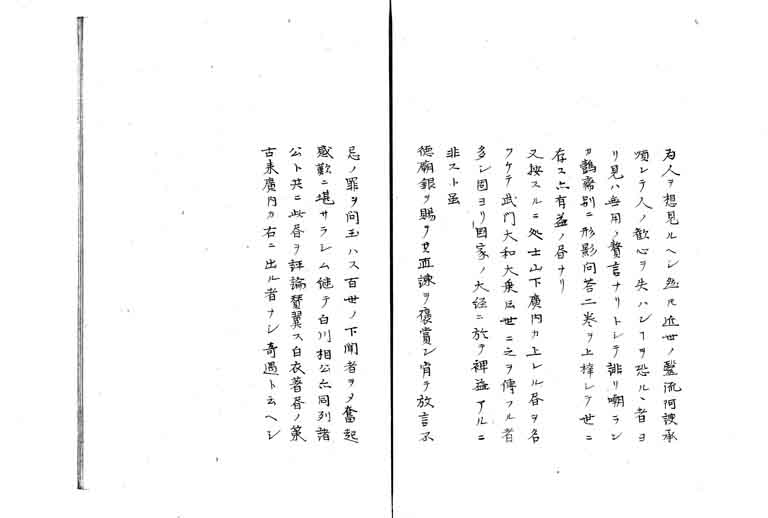 為人ヲ想見ルヘシ然ルニ近世ノ醫流阿諛承
順シテ人ノ歡心ヲ失ハンヿヲ恐ル丶者ヨ
リ見ハ無用ノ贅言ナリトシテ誹リ嘲ラン
カ鶴齋別ニ形影問答二卷ヲ上梓シテ世ニ
存ス亦有益ノ書ナリ
又按スルニ処士山下廣内カ上レル書ヲ名
ツケテ武門大和大乗ト云世ニ之ヲ傳フル者
多シ固ヨリ国家ノ大経ニ於テ裨益アルニ
非スト虽
德廟銀ヲ賜ヲ其直諫ヲ褒賞シ宵テ放言不
忌ノ罪ヲ問玉ハス百世ノ下聞者ヲメ奮起
感歎ニ堪サラシム継テ白川相公亦同列諸
公ト共ニ此書ヲ評論賛翼ス白衣著書ノ策
古来廣内カ右ニ出ル者ナシ奇遇ト云ヘシ